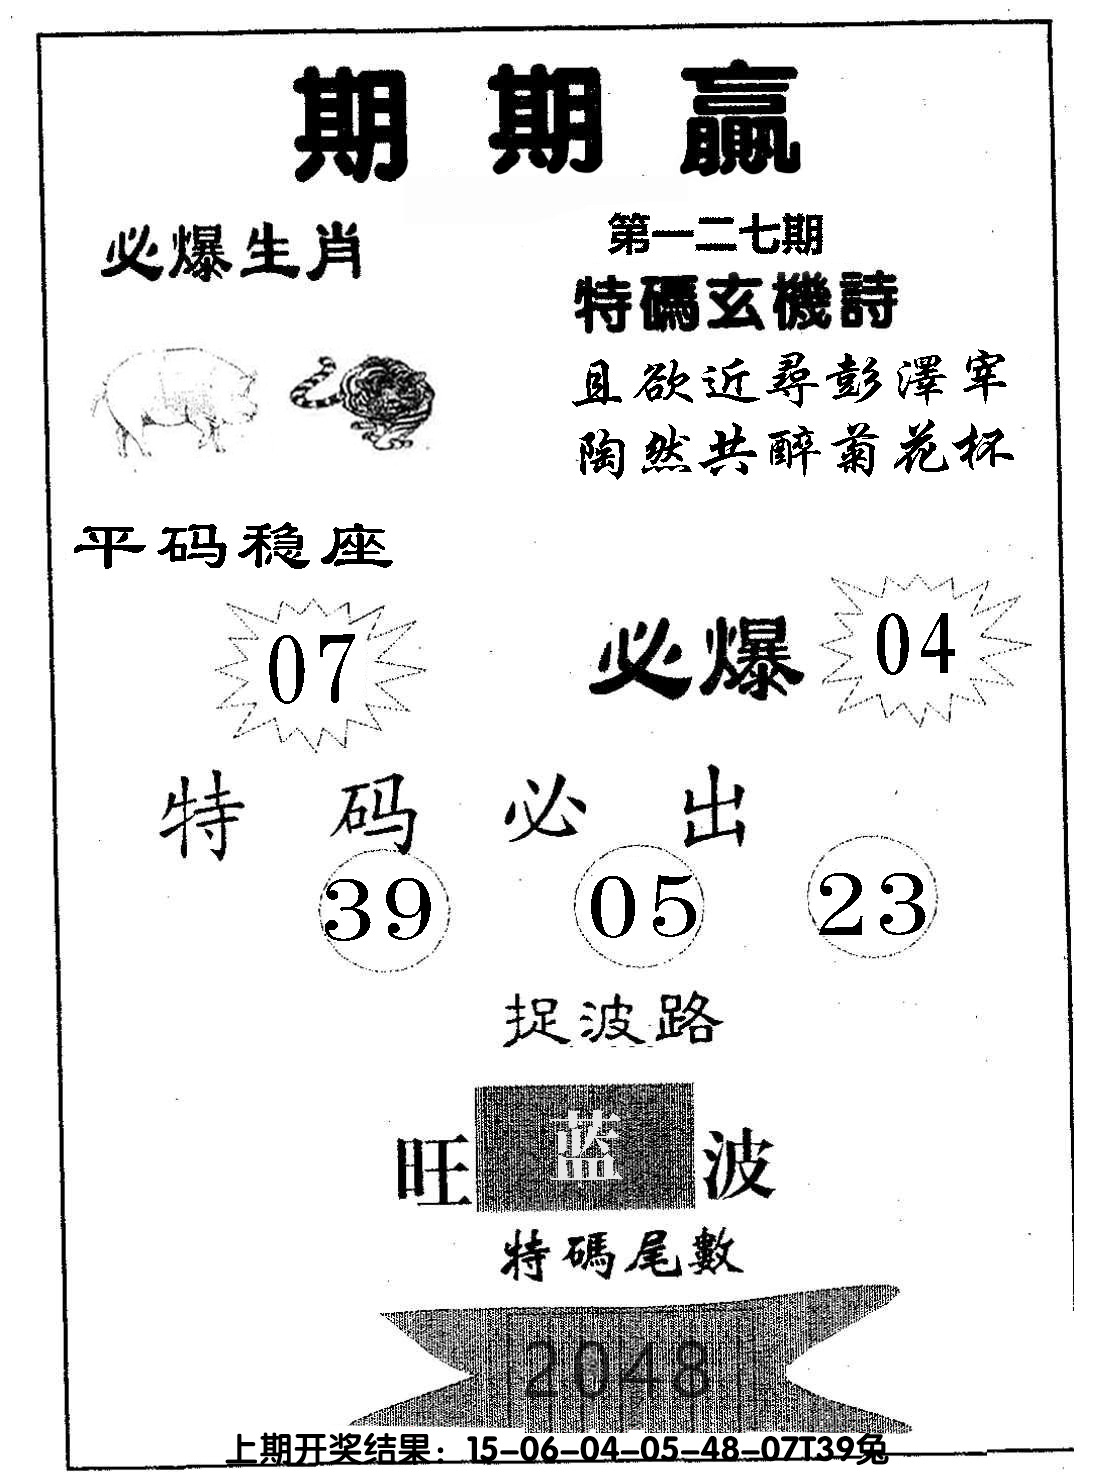 期期贏
必爆生肖
第一二七期
特碼玄機詩
且欲近尋彭澤宰
陶然共醉菊花杯
平码稳座
07
必爆 04
特码必出
39 05 23
捉波路
旺 蓝 波
特碼尾數
2048
上期开奖结果：15-06-04-05-48-07T39兔